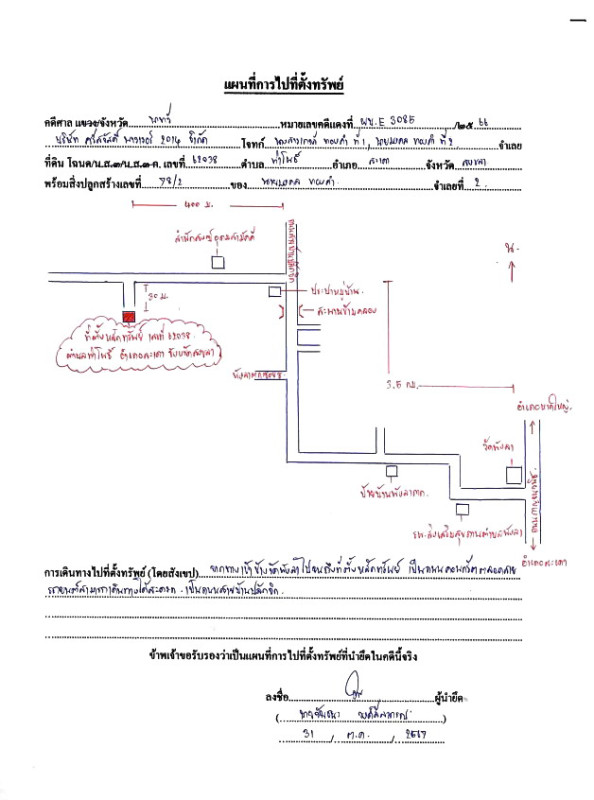 แผนที่การไปที่ตั้งทรัพย์
คดีศาล แขวง/จังหวัด นาทวี หมายเลขคดีแดงที่ ผบ.E 3085 /๒๕ 66
บริษัท ศรีสวัสดิ์ พาวเวอร์ 2014 จำกัด โจทก์ ทองคำ ที่ 1, นายมงคล ทองคำ ที่ 2 จำเลย
ที่ดิน โฉนด/น.ส.๓/น.ส.๓-ก. เลขที่ 62038 ตำบล ท่าโพธิ์ อำเภอ สะเดา จังหวัด สงขลา
พร้อมสิ่งปลูกสร้างเลขที่ 78/2 ของ นายมงคล ทองคำ จำเลยที่ 2
400 ม.
สำนักสงฆ์
น.
30 ม.
ประปาหมู่บ้าน
สะพานข้ามคลอง
ที่ตั้งหลักทรัพย์ เลขที่ 62038
ตำบลท่าโพธิ์ อำเภอสะเดา จังหวัดสงขลา
3.5 กม.
อำเภอหาดใหญ่
วัดพังลา
ป้ายบ้านพังลา
รพ.ส่งเสริมสุขภาพตำบลพังลา
อำเภอสะเดา
การเดินทางไปที่ตั้งทรัพย์ (โดยสังเขป) จากทางเข้าข้างวัดพังลาไปจนถึงที่ตั้งหลักทรัพย์ เป็นถนนคอนกรีตตลอดสาย
รถยนต์สามารถเดินทางได้สะดวก เป็นถนนสายบ้านปลักชิด
ข้าพเจ้าขอรับรองว่าเป็นแผนที่การไปที่ตั้งทรัพย์ที่นำยึดในคดีนี้จริง
ลงชื่อ ผู้นำยึด
31 / ต.ค. / 2567